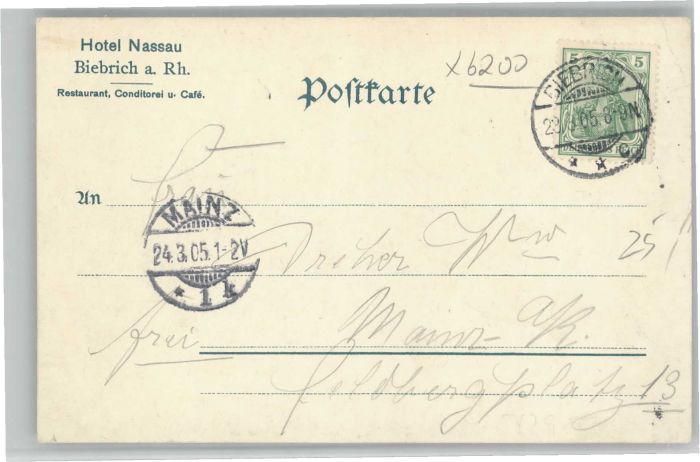 Hotel Nassau
Biebrich a. Rh.
Restaurant, Conditorei u. Café.
x6200
Postkarte
5 5
BIEBRICH
05. 8-9N
An Frau
MAINZ
24.3.05.1-2V
* 1 k
Dreher Ww
25
frei Mainz a/R.
Feldbergplatz 13